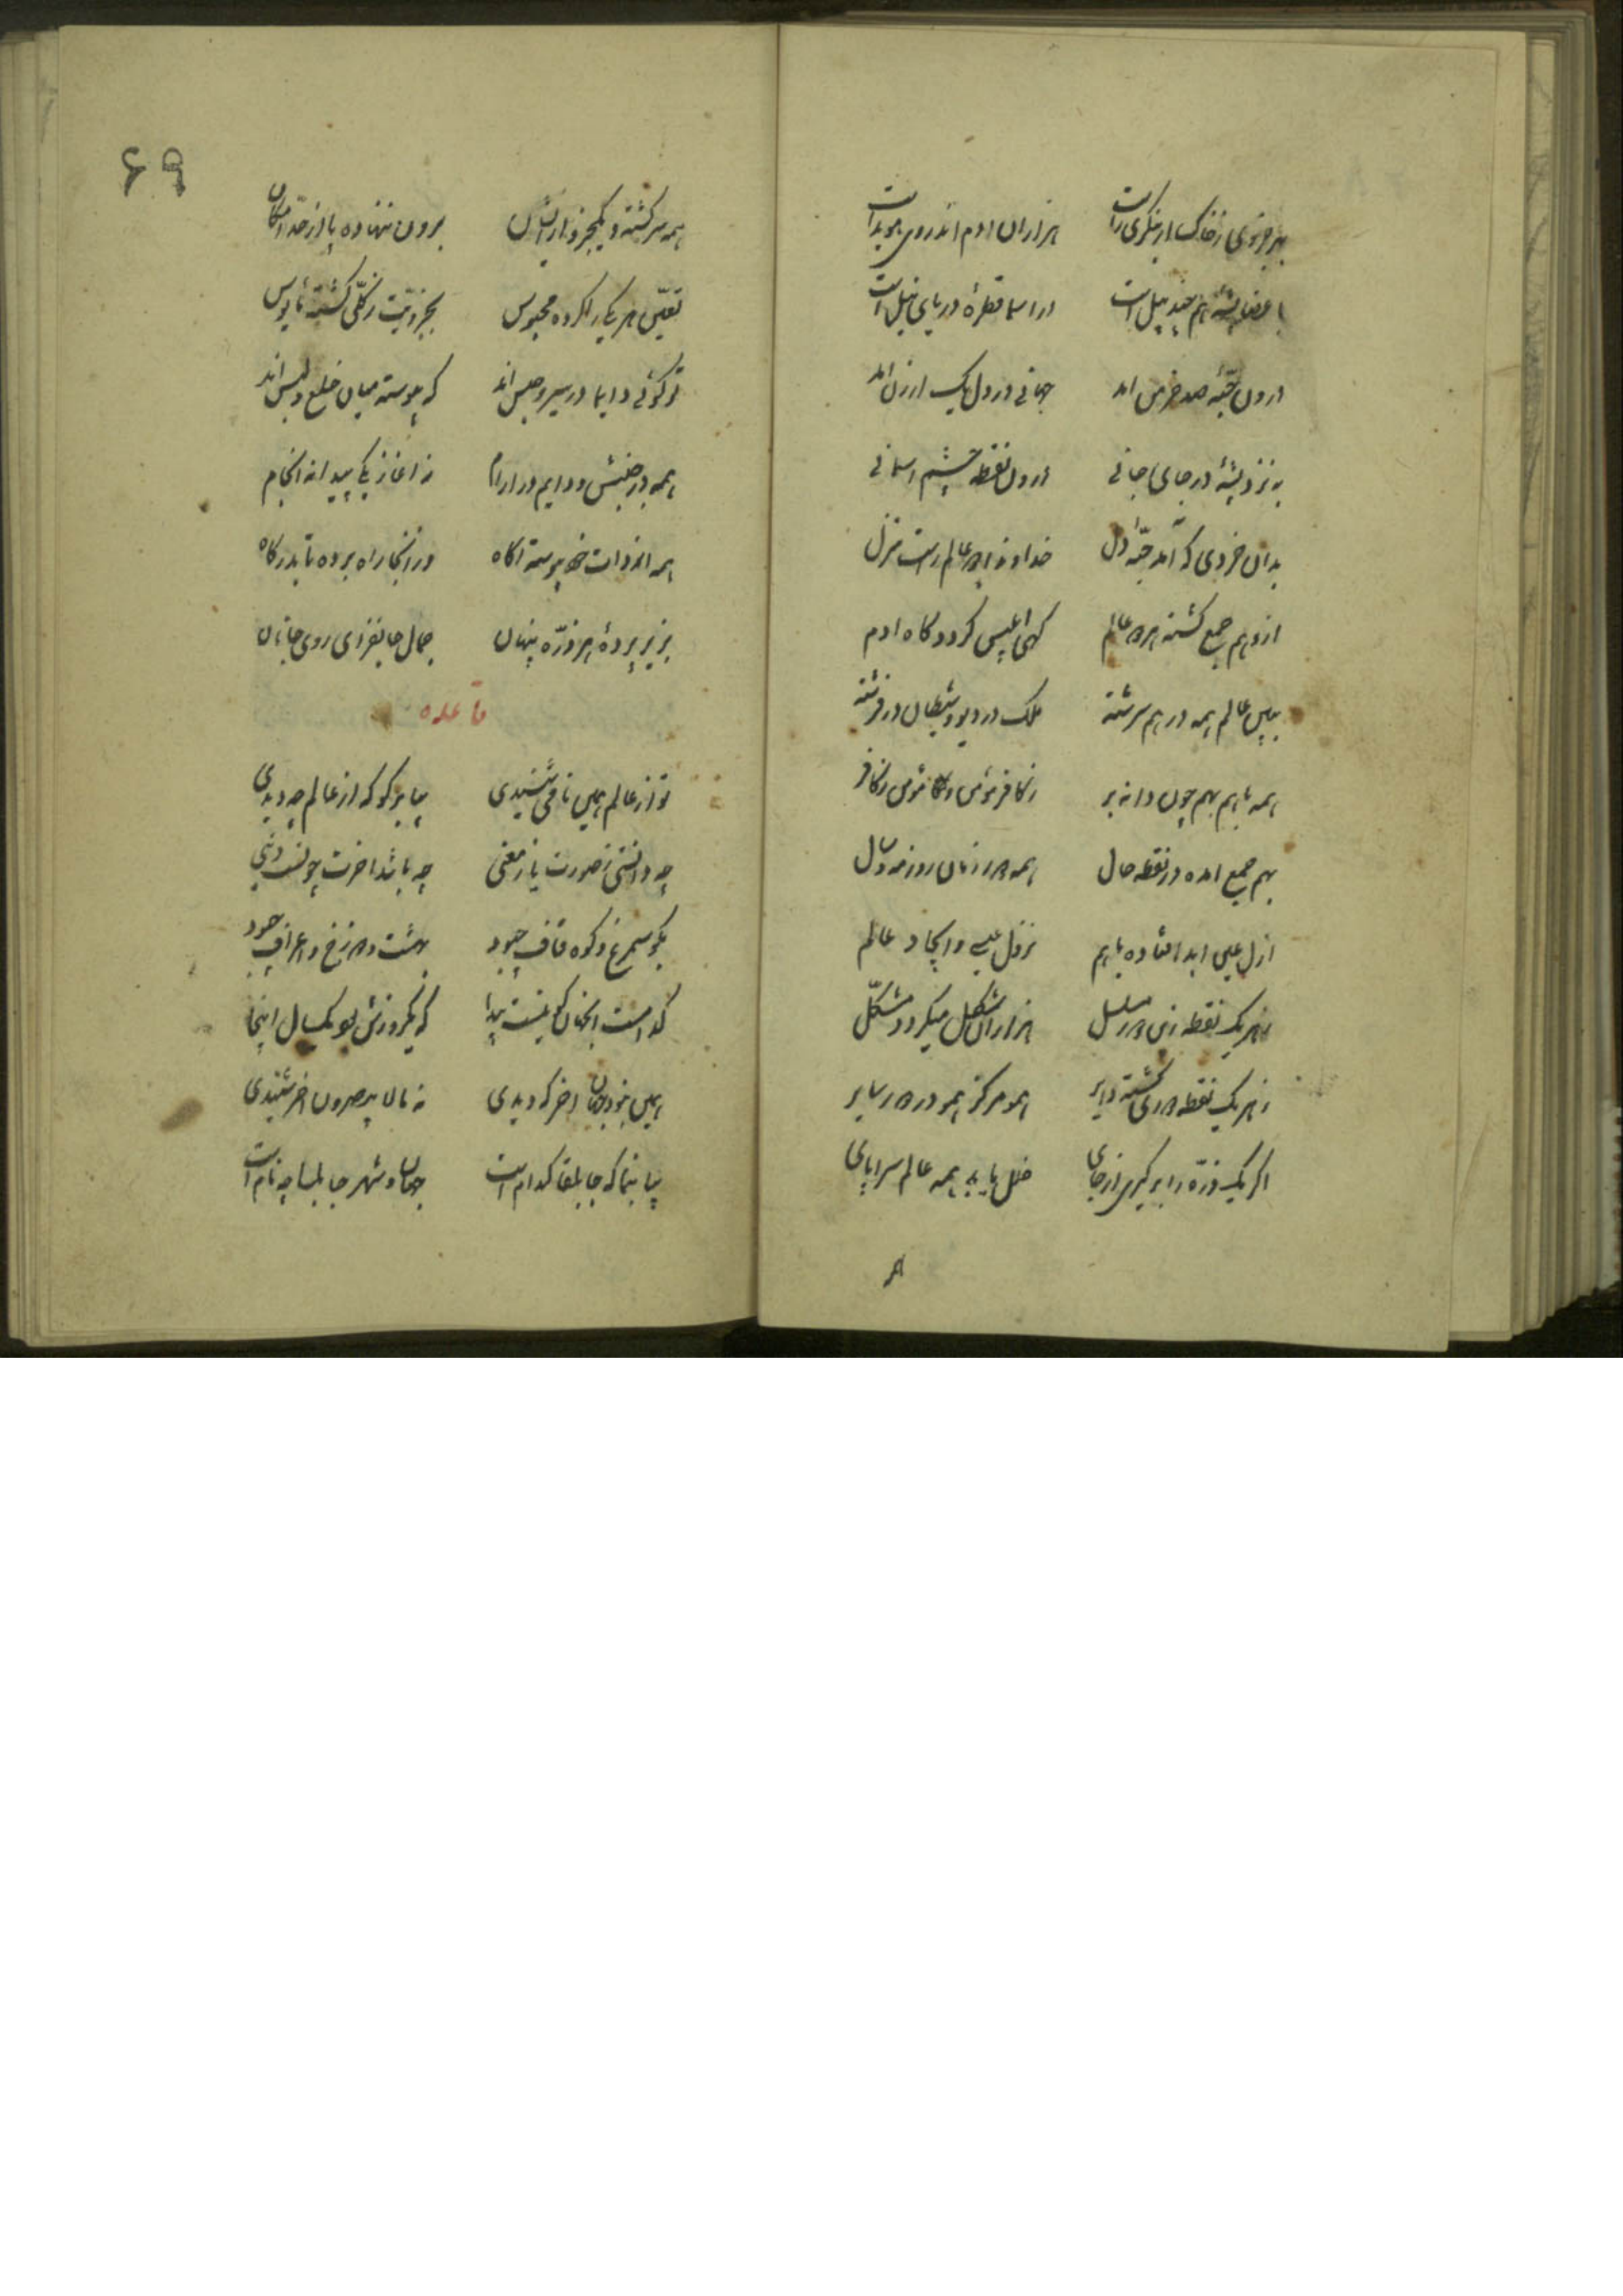 بهر جزوی ز خاک ار بنگری راست هزاران ادم اندر وی هویداست
باعضا پشه هم چند پیل است در اسما قطرهٔ دریای نیل است
درون حبّهٔ صد خرمن امد جهانی در دل یک ارزن امد
به پر پشهٔ در جای جانی درون نقطه چشم اسمانی
بدان خردی که آمد حبّهٔ دل خداوند دو عالم راست منزل
ازو هم جمع کشته هر دو عالم کهی ابلیس کردد کاه ادم
ببین عالم همه در هم سرشته ملک در دیو و شیطان در فرشته
همه با هم بهم چون دانه بر ز کافر مؤمن و مؤمن ز کافر
بهم جمع امده در نقطه حال همه دور زمان روز و مه و سال
ازل عین ابد افتاده با هم نزول عیسی و ایجاد عالم
ز هر یک نقطه زین دور مسلسل هزاران شکل میکردد مشکّل
ز هر یک نقطه دوری کشته دایر همو مرکز همو در دور سایر
اکر یک ذرّه را بر کیری از جای خلل یابد همه عالم سراپای
همه سرکشته و یکجزو ازیشان برون ننهاده پا از حدّ امکان
تعیّن هر یکی را کرده محبوس بجزویّت ز کلّی کشته مایوس
تو کوئی دایما در سیر و حبس‌اند که پیوسته میان خلع و لبس‌اند
همه در جنبش و دایم در ارام نه اغاز یکی پیدا نه انجام
همه از ذات خود پیوسته اکاه وز انجا راه برده تا بدرکاه
بزیر پردهٔ هر ذرّه پنهان جمال جانفزای روی جانان
قاعده
تو از عالم همین نامی شنیدی بیا بر کو که از عالم چه دیدی
چه دانستی ز صورت یا ز معنی چه باشد اخرت چونست دنیی
بکو سیمرغ و کوه قاف چبود بهشت و دوزخ و اعراف چبود
کدامست انجهان کو نیست پیدا که یکروزش بود یکسال اینجا
همین نبود جهان اخر که دیدی نه ما لا تبصرون اخر شنیدی
بیا بنما که جابلقا کدام است جهان و شهر جابلسا چه نام است
۶۹